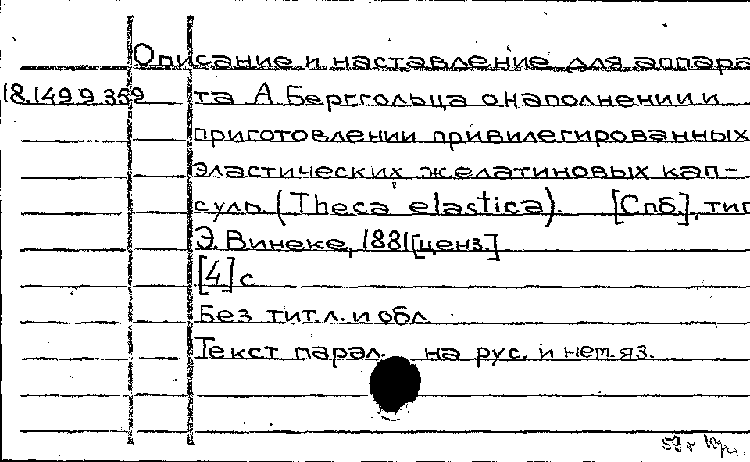 Описание и наставление для аппара
18.149.9.359 та А. Берггольца о наполнении и
приготовлении привилегированных
эластических желатиновых кап-
суль. (Theca elastica). [Спб.], тип
Э. Винеке, 1881 [ценз.]
[4] с
Без тит.л. и обл.
Текст парал. на рус. и нем. яз.